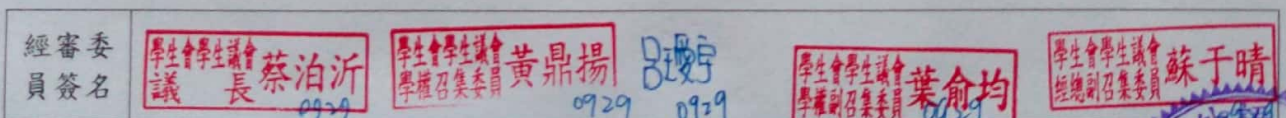 經審委
員簽名
學生會學生議會
議長 蔡泊沂
0929
學生會學生議會
學權召集委員 黃鼎揚
0929
呂瓔宇
0929
學生會學生議會
學權副召集委員 葉俞均
0929
學生會學生議會
經總副召集委員 蘇于晴